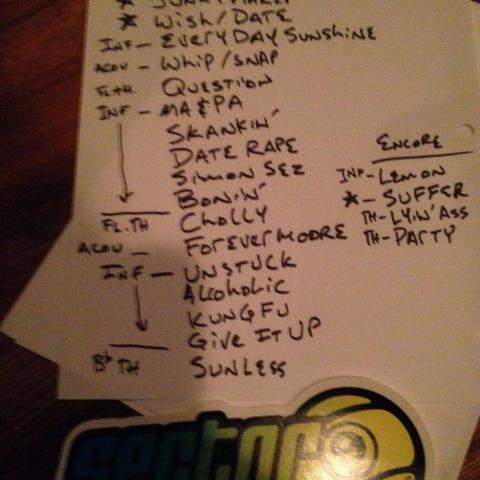 * Wish/DATE
INF - EVERYDAY SUNSHINE
ACOU - Whip/SNAP
FL.TH. QUESTION
INF - MA & PA
SKANKIN'
DATE RAPE
SIMMON SEZ
BONIN'
FL.TH CHOLLY
ACOU - FOREVERMOORE
INF - UNSTUCK
ALCOHOLIC
KUNG FU
GIVE IT UP
Bb TH SUNLESS
ENCORE
INF - LEMON
* - SUFFER
TH - LYIN' ASS
TH - PARTY
sector